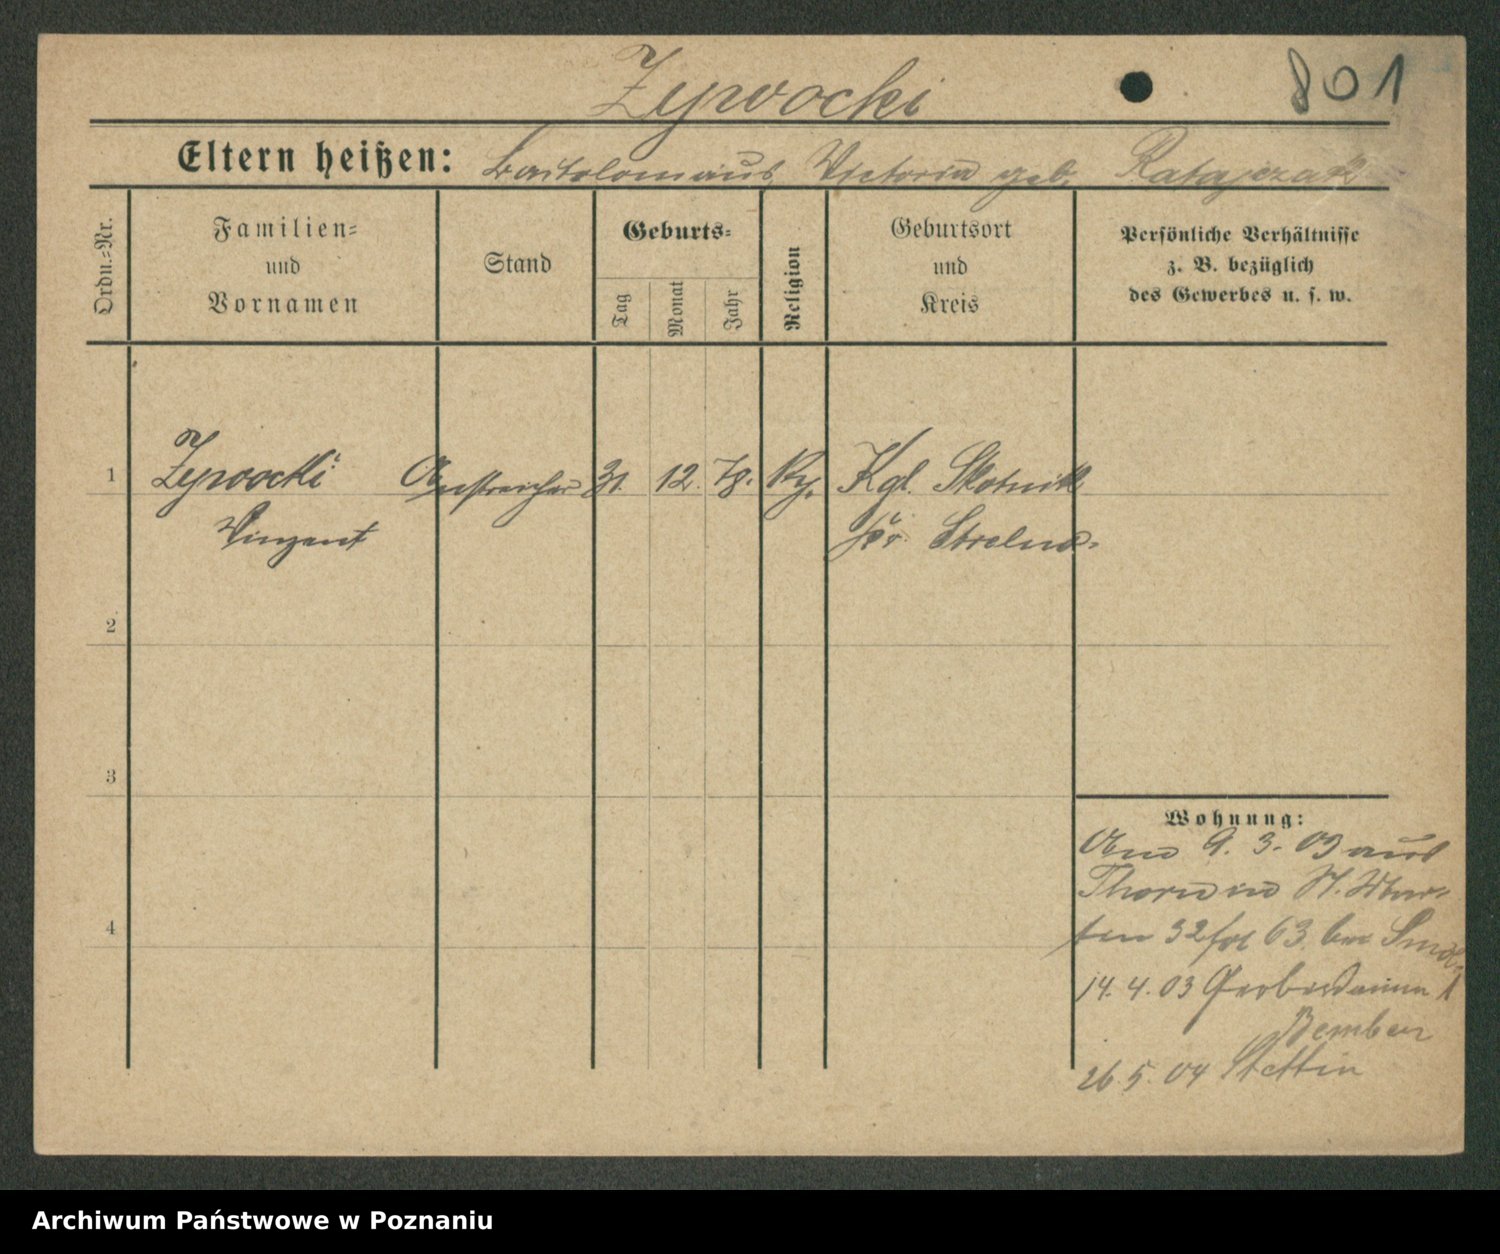 Zywocki 801
Eltern heißen: Bartolomäus, Victoria geb. Ratajczak
Ordn.=Nr.
Familien=
und
Vornamen
Stand
Geburts=
Tag
Monat
Jahr
Religion
Geburtsort
und
Kreis
Persönliche Verhältnisse
z. B. bezüglich
des Gewerbes u. s. w.
1 Zywocki Anstreicher 31. 12. 78. Kgl. Skotnik
Vinzent Strelno.
2
3
4
Wohnung:
9. 3. 03 aus
Thorn in St. Mar-
tin 32 63. bei
14. 4. 03 Gerberdamm 1
26. 5. 04 Stettin
Archiwum Państwowe w Poznaniu